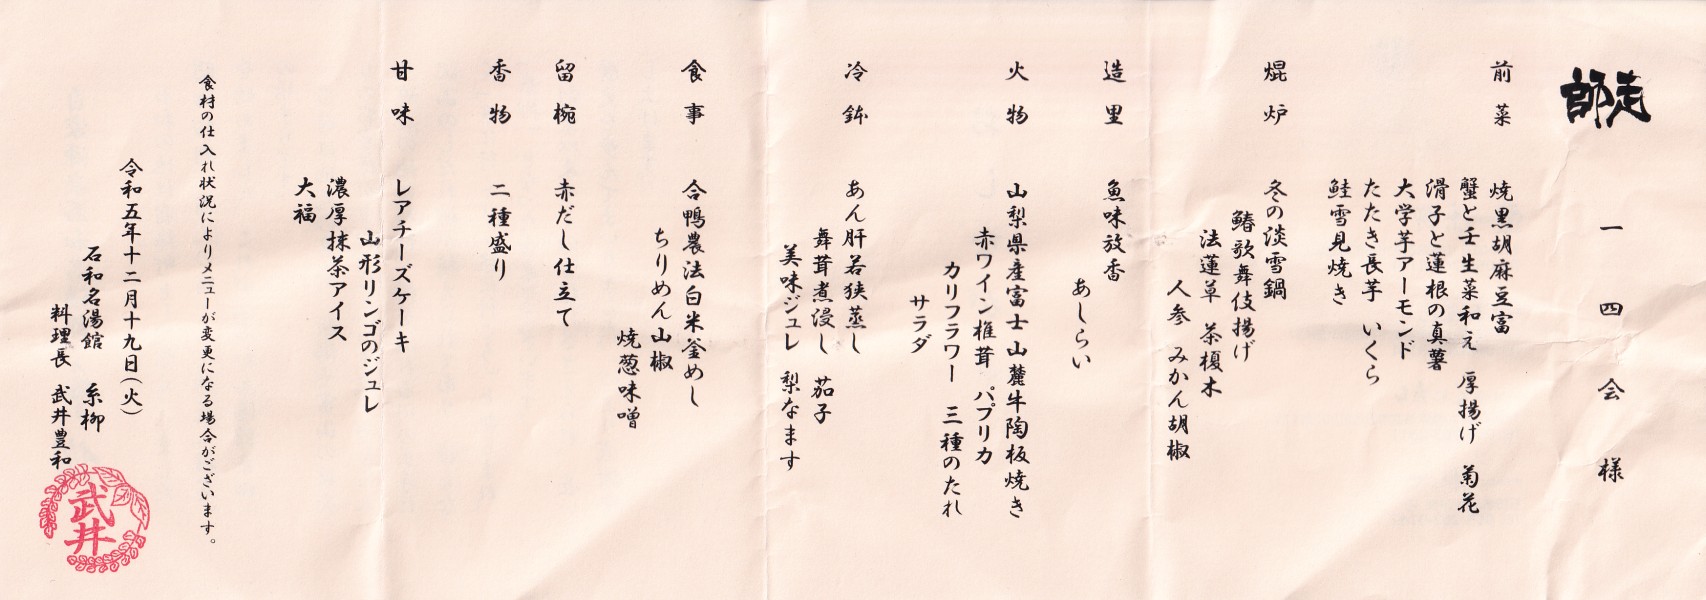 師走
一四会様
前菜
焼黒胡麻豆富
蟹と壬生菜和え 厚揚げ 菊花
滑子と蓮根の真薯
大学芋アーモンド
たたき長芋 いくら
鮭雪見焼き
焜炉
冬の淡雪鍋
鰆歌舞伎揚げ
法蓮草 茶榎木
人参 みかん胡椒
造里
魚味放香
あしらい
火物
山梨県産富士山麓牛陶板焼き
赤ワイン椎茸 パプリカ
カリフラワー 三種のたれ
サラダ
冷鉢
あん肝若狭蒸し
舞茸煮浸し 茄子
美味ジュレ 梨なます
食事
合鴨農法白米釜めし
ちりめん山椒
焼葱味噌
留椀
赤だし仕立て
香物
二種盛り
甘味
レアチーズケーキ
山形リンゴのジュレ
濃厚抹茶アイス
大福
食材の仕入れ状況によりメニューが変更になる場合がございます。
令和五年十二月十九日(火)
石和名湯館 糸柳
料理長 武井豊和
武井